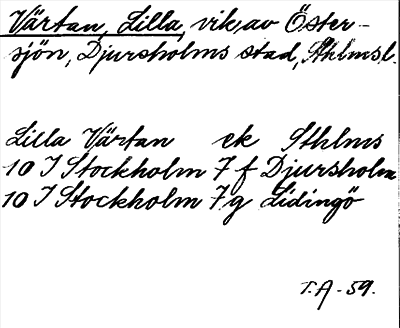 Värtan, Lilla, vik, av Öster-
sjön, Djursholms stad, Sthlmsl.
Lilla Värtan ek Sthlms
10 I Stockholm 7 f Djursholm
10 I Stockholm 7 g Lidingö
T.A-59.